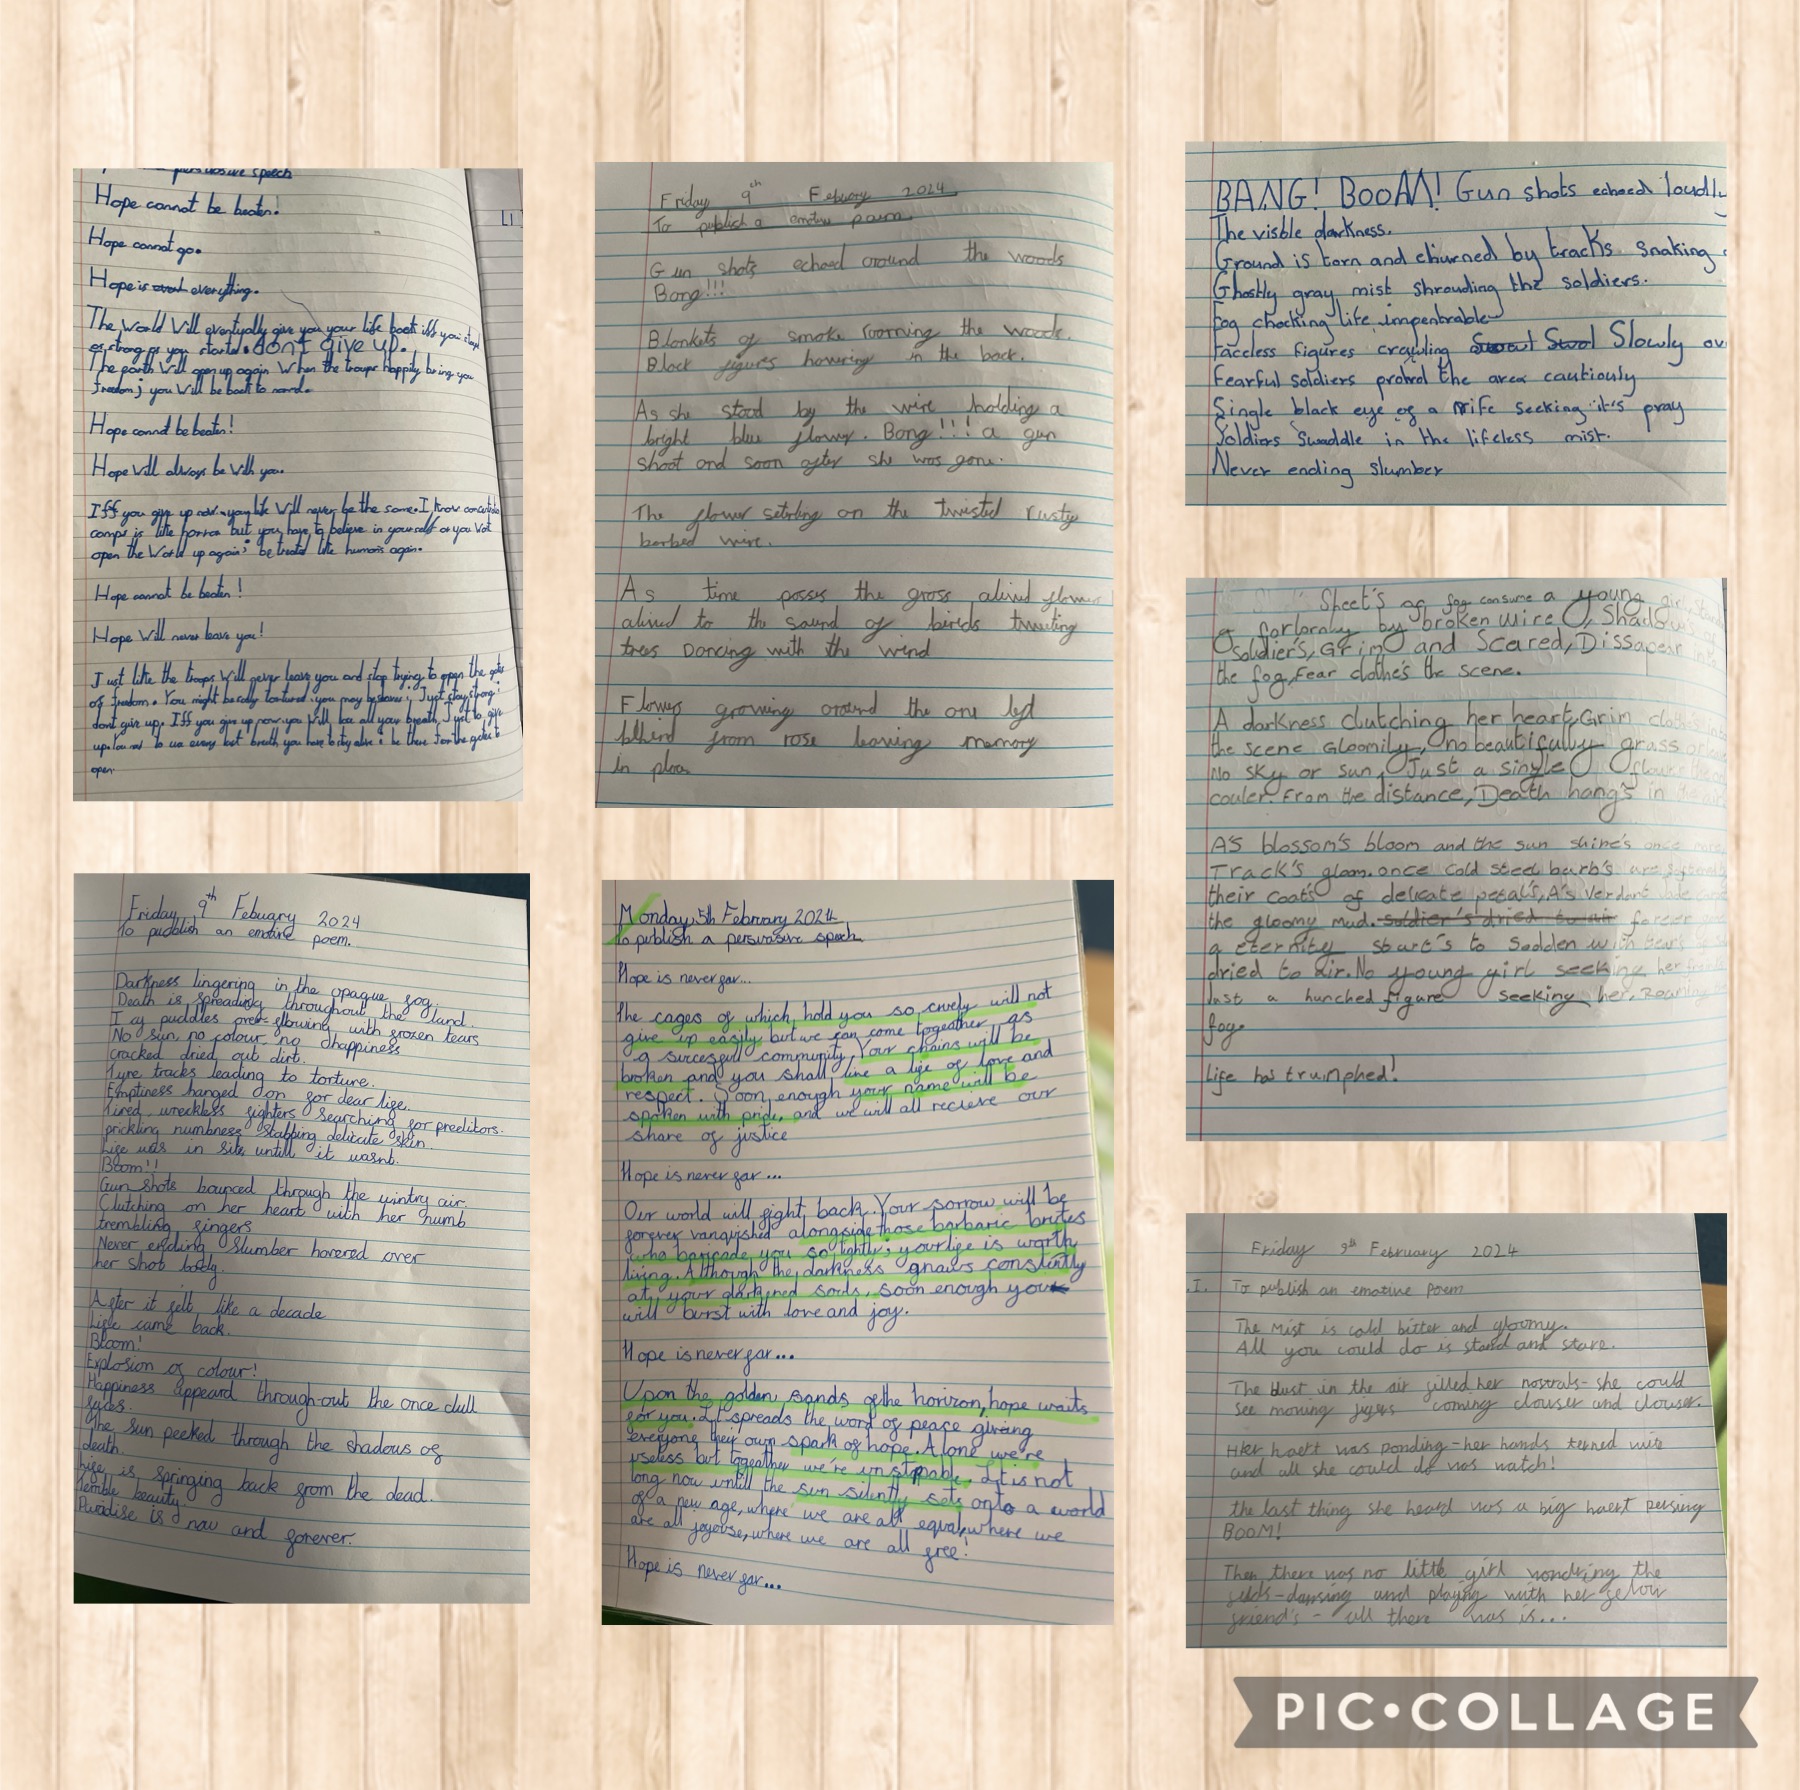 persuasive speech
Hope cannot be beaten!
Hope cannot go.
Hope is everything.
The World Will eventually give you your life back iff you stay
as strong as you started. dont give up.
The earth Will open up again When the troops happily bring you
freedom; you Will be back to normal.
Hope cannot be beaten!
Hope Will always be With you.
Iff you give up now your life Will never be the same. I know concentration
camps is like horror but you have to believe in yourself or you Wont
open the World up again; be treated like humans again.
Hope cannot be beaten!
Hope Will never leave you!
Just like the troops Will never leave you and stop trying to open the gates
of freedom. You might be badly tortured; you may be starved; Just stay strong;
dont give up. Iff you give up now you Will lose all your breath
up. You need to use every last breath you have to stay alive & be there for the gates to
open.
Friday 9th Febuary 2024
To publish a emotive poem
Gun shots echoed around the woods
Bang!!!
Blankets of smoke rooming the woods.
Black figures hovering in the back.
As she stood by the wire holding a
bright blue flower. Bang!!! a gun
shoot and soon after she was gone.
The flower setirling on the twisted rusty
barbed wire.
As time passes the grass alived flowers
alived to the sound of birids tweeting
trees Dancing with the wind
Flowers growing around the one left
behind from rose leaving memory
in place
BANG! BOOM! Gun shots echoed loudly
The visble darkness.
Ground is torn and churned by tracks snaking
Ghostly gray mist shrouding the soldiers.
Fog chocking life impentrable
Faceless figures crawling Slowly ov
Fearful soldiers protrol the area cautiously
Single black eye of a rife seeking it's pray
Soldiers swaddle in the lifeless mist.
Never ending slumber
Sheet's of fog consume a young girl
forlornly by broken wire, Shadows of
Soldier's, Grim and Scared, Dissapear into
the fog, Fear clothe's the scene.
A darkness clutching her heart, Grim
the scene Gloomily, no beautifully grass or
No sky or sun, Just a single flower
couler. From the distance, Death hang's in the air
A's blossom's bloom and the sun shine's once more
Track's gleam. once cold steel barb's are
their coat's of delicate petal's, A's verdant
the gloomy mud. soldier's dried to air forever
a eternity start's to Sadden with tears
dried to air. No young girl seeking her
Just a hunched figure seeking her, Roaming
fog.
Life has trumphed!
Friday 9th Febuary 2024
To publish an emotive poem.
Darkness lingering in the opaque fog.
Death is spreading throughout the land.
Icy puddles over-flowing with frozen tears
No sun, no colour, no happiness
cracked dried out dirt.
Tyre tracks leading to torture.
Emptiness hanged on for dear life.
Tired, wreckless fighters searching for preditors.
prickling numbness stabbing delicate skin.
Life was in site untill it wasnt.
Boom!!
Gun shots bounced through the wintry air.
Clutching on her heart with her numb
trembling fingers
Never ending slumber hovered over
her shot body.
After it felt like a decade
Life came back.
Bloom!
Explosion of colour!
Happiness appeard through-out the once dull
The sun peeked through the shadows of
death.
Life is springing back from the dead.
Terrible beauty.
Paradise is now and forever.
Monday, 5th February 2024
To publish a persuasive speech
Hope is never far...
The cages of which hold you so cruely will not
give up easily but we can come together as
a succesfull community. Your chains will be
broken and you shall live a life of love and
respect. Soon enough your name will be
spoken with pride, and we will all recieve our
share of justice
Hope is never far...
Our world will fight back. Your sorrow will be
forever vanquished alongside those barbaric brutes
who baricade you so tightly; your life is worth
living. Although the darkness gnaws constantly
at your darkened souls, soon enough you
will burst with love and joy.
Hope is never far...
Upon the golden sands of the horizon, hope waits
for you. It spreads the word of peace giving
everyone their own spark of hope. Alone we're
useless but together we're unstopable. It is not
long now untill the sun silently sets onto a world
of a new age, where we are all equal, where we
are all joyouse, where we are all free!
Hope is never far...
Friday 9th February 2024
.I. To publish an emotive poem
The Mist is cold bitter and gloomy.
All you could do is stand and stare.
The dust in the air filled her nostrals- she could
see moving figers coming clouser and clouser.
Her haert was ponding - her hands terned
and all she could do was watch!
the last thing she heard was a big haert persing
BOOM!
Then there was no little girl wondring the
feilds - dansing and playing with her felow
friend's - all there was is...
PIC•COLLAGE